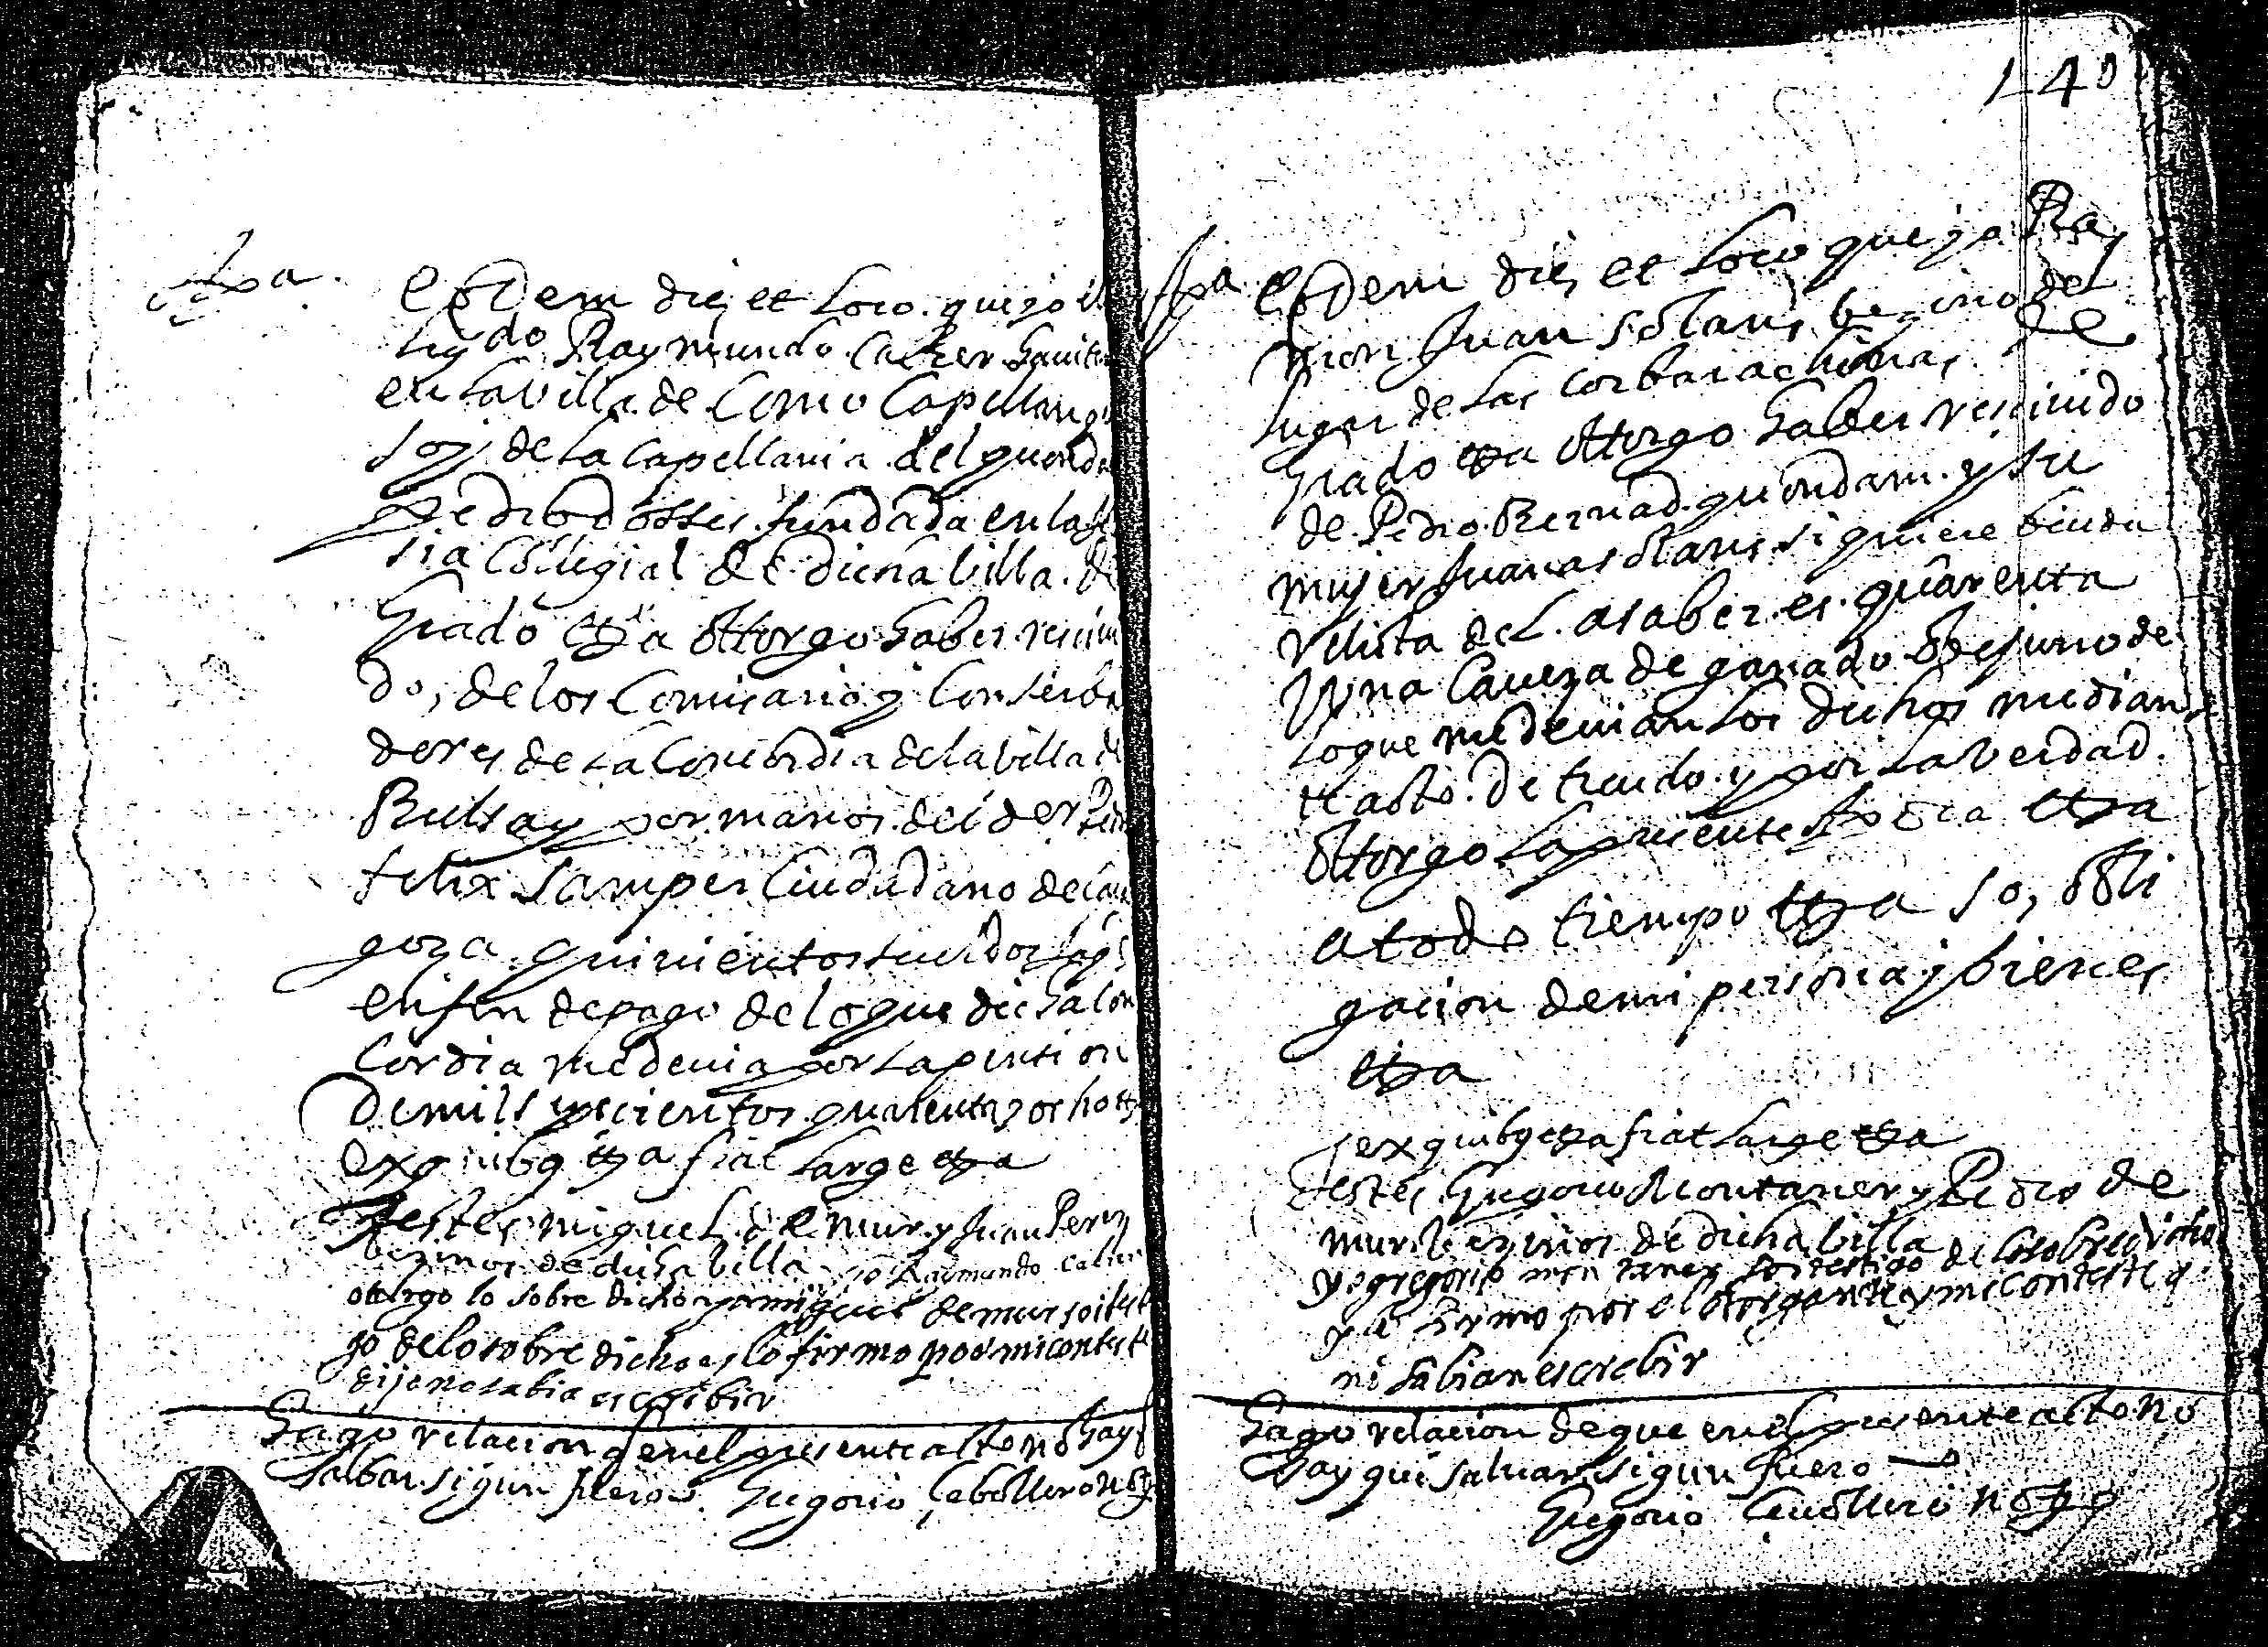 Eodem die et Loco. que yo el
Lizdo Raymundo Calber havitte
en la villa de Como Capellan q
soy de la Capellania del quonda
Pedro dosses fundada en la
sia Collegial de dicha villa. de
Grado etta Ottorgo haber recivi
do, de los Comisario y Conserba
dores de la Concordia de la villa de
por manos del
felix Samper Ciudadano de Cara
goza quinientos sueldos Jaqs
en fin de pago de lo que dicha Con
Cordia me devia por la pension
de mil seyscientos quarenta y ocho etta
ex quibq etta fiat large etta
Testes miguel de mur y Juan Perez
vezinos de dicha villa yo Raimundo Calber
otorgo lo sobre dicho yo miguel de mur soi testi
go de lo sobre dicho y lo firmo por mi conteste
dije no sabia escribir
Hago relacion q en el presente acto no hay q
salbar sigun fuero. Gregorio Cebollero notº
140
Eodem die et Loco que yo Ra
mon Juan solans bezino del
lugar de las Corbaiachinas de
Grado etta Ottorgo haber rescivido
de Pedro Bernad quondam y su
mujer Juana solans si quiere biuda
relicta del. asaber es quarenta
y una Caveza de ganado Obejuno de
lo que me devian los dichos median
te acto de treudo y por la verdad
Ottorgo la presente Apoca etta
a todo tiempo etta so, obli
gacion de mi persona y bienes
etta
ex quibq etta fiat large etta
Testes Gregorio Montaner y Pedro de
mur bezinos de dicha billa
yo gregorio montaner soi testigo de lo sobredicho
y a firmo por el otorgante y mi conteste q
ni sabian escrebir
Hago relacion de que en el presente acto no
hay que salvar sigun fuero
Gregorio Cevollero notº